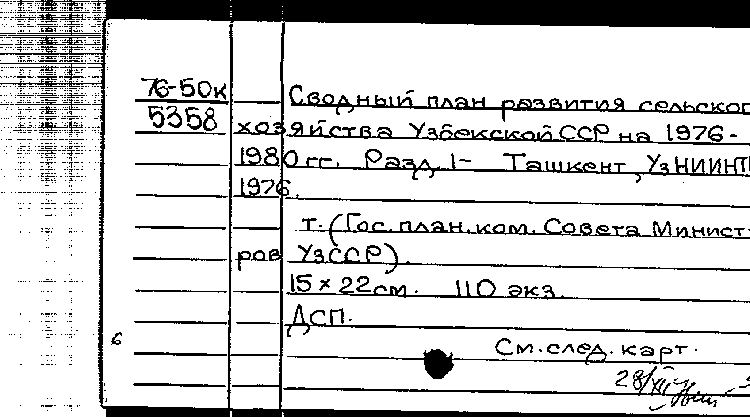 76-50к
5358
Сводный план развития сельског
хозяйства Узбекской ССР на 1976-
1980 гг. Разд. 1- Ташкент, УзНИИНТИ
1976.
т. (Гос. план. ком. Совета Минист-
ров УзССР).
15 × 22 см. 110 экз.
ДСП.
6
См. след. карт.
28/XII